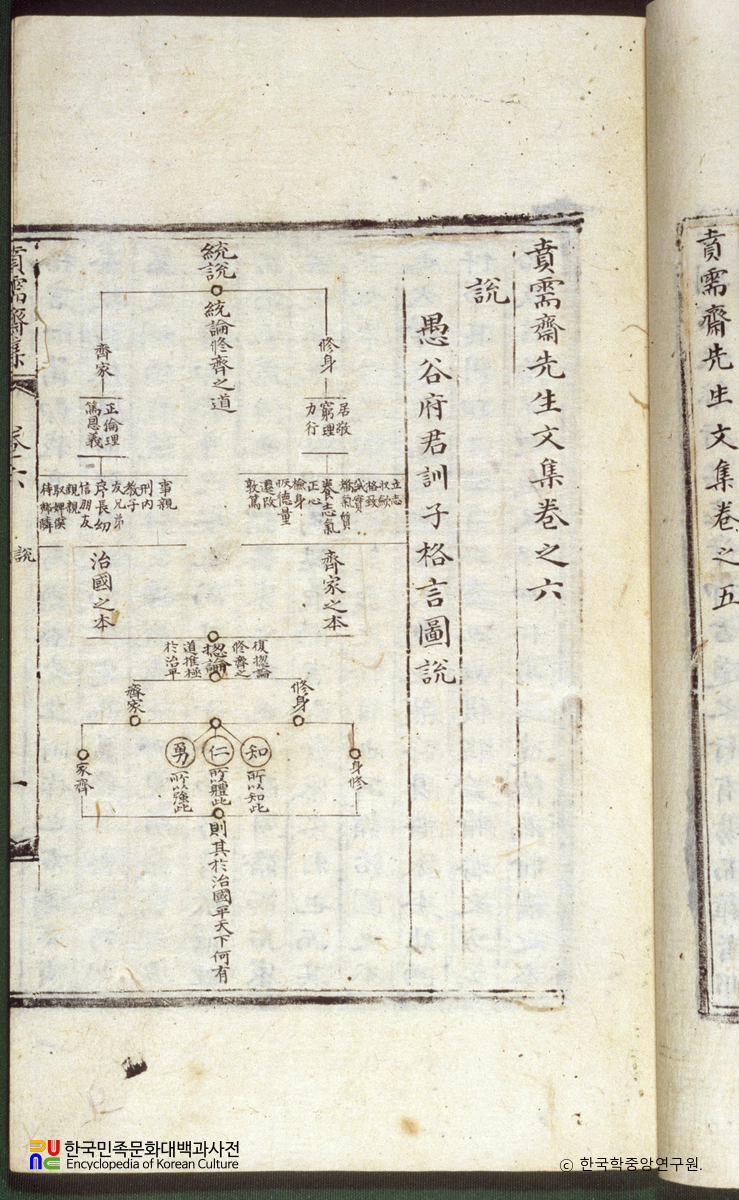 賁需齋先生文集卷之五
賁需齋先生文集卷之六
說
愚谷府君訓子格言圖說
統說
統論修齊之道
修身
齊家
居敬
窮理
力行
正倫理
篤恩義
立志
收斂
格致
誠實
矯氣質
養志氣
正心
檢身
恢德量
遷改
敦篤
事親
刑內
教子
友兄弟
序長幼
信朋友
親親
馭婢僕
待鄰
齊家之本
治國之本
摠論
復摠論
修齊之
道推極
於治平
修身
齊家
知
仁
勇
所以知此
所以體此
所以強此
身修
家齊
則其於治國平天下何有
賁需齋集
卷之六
說
一
한국민족문화대백과사전
Encyclopedia of Korean Culture
© 한국학중앙연구원.